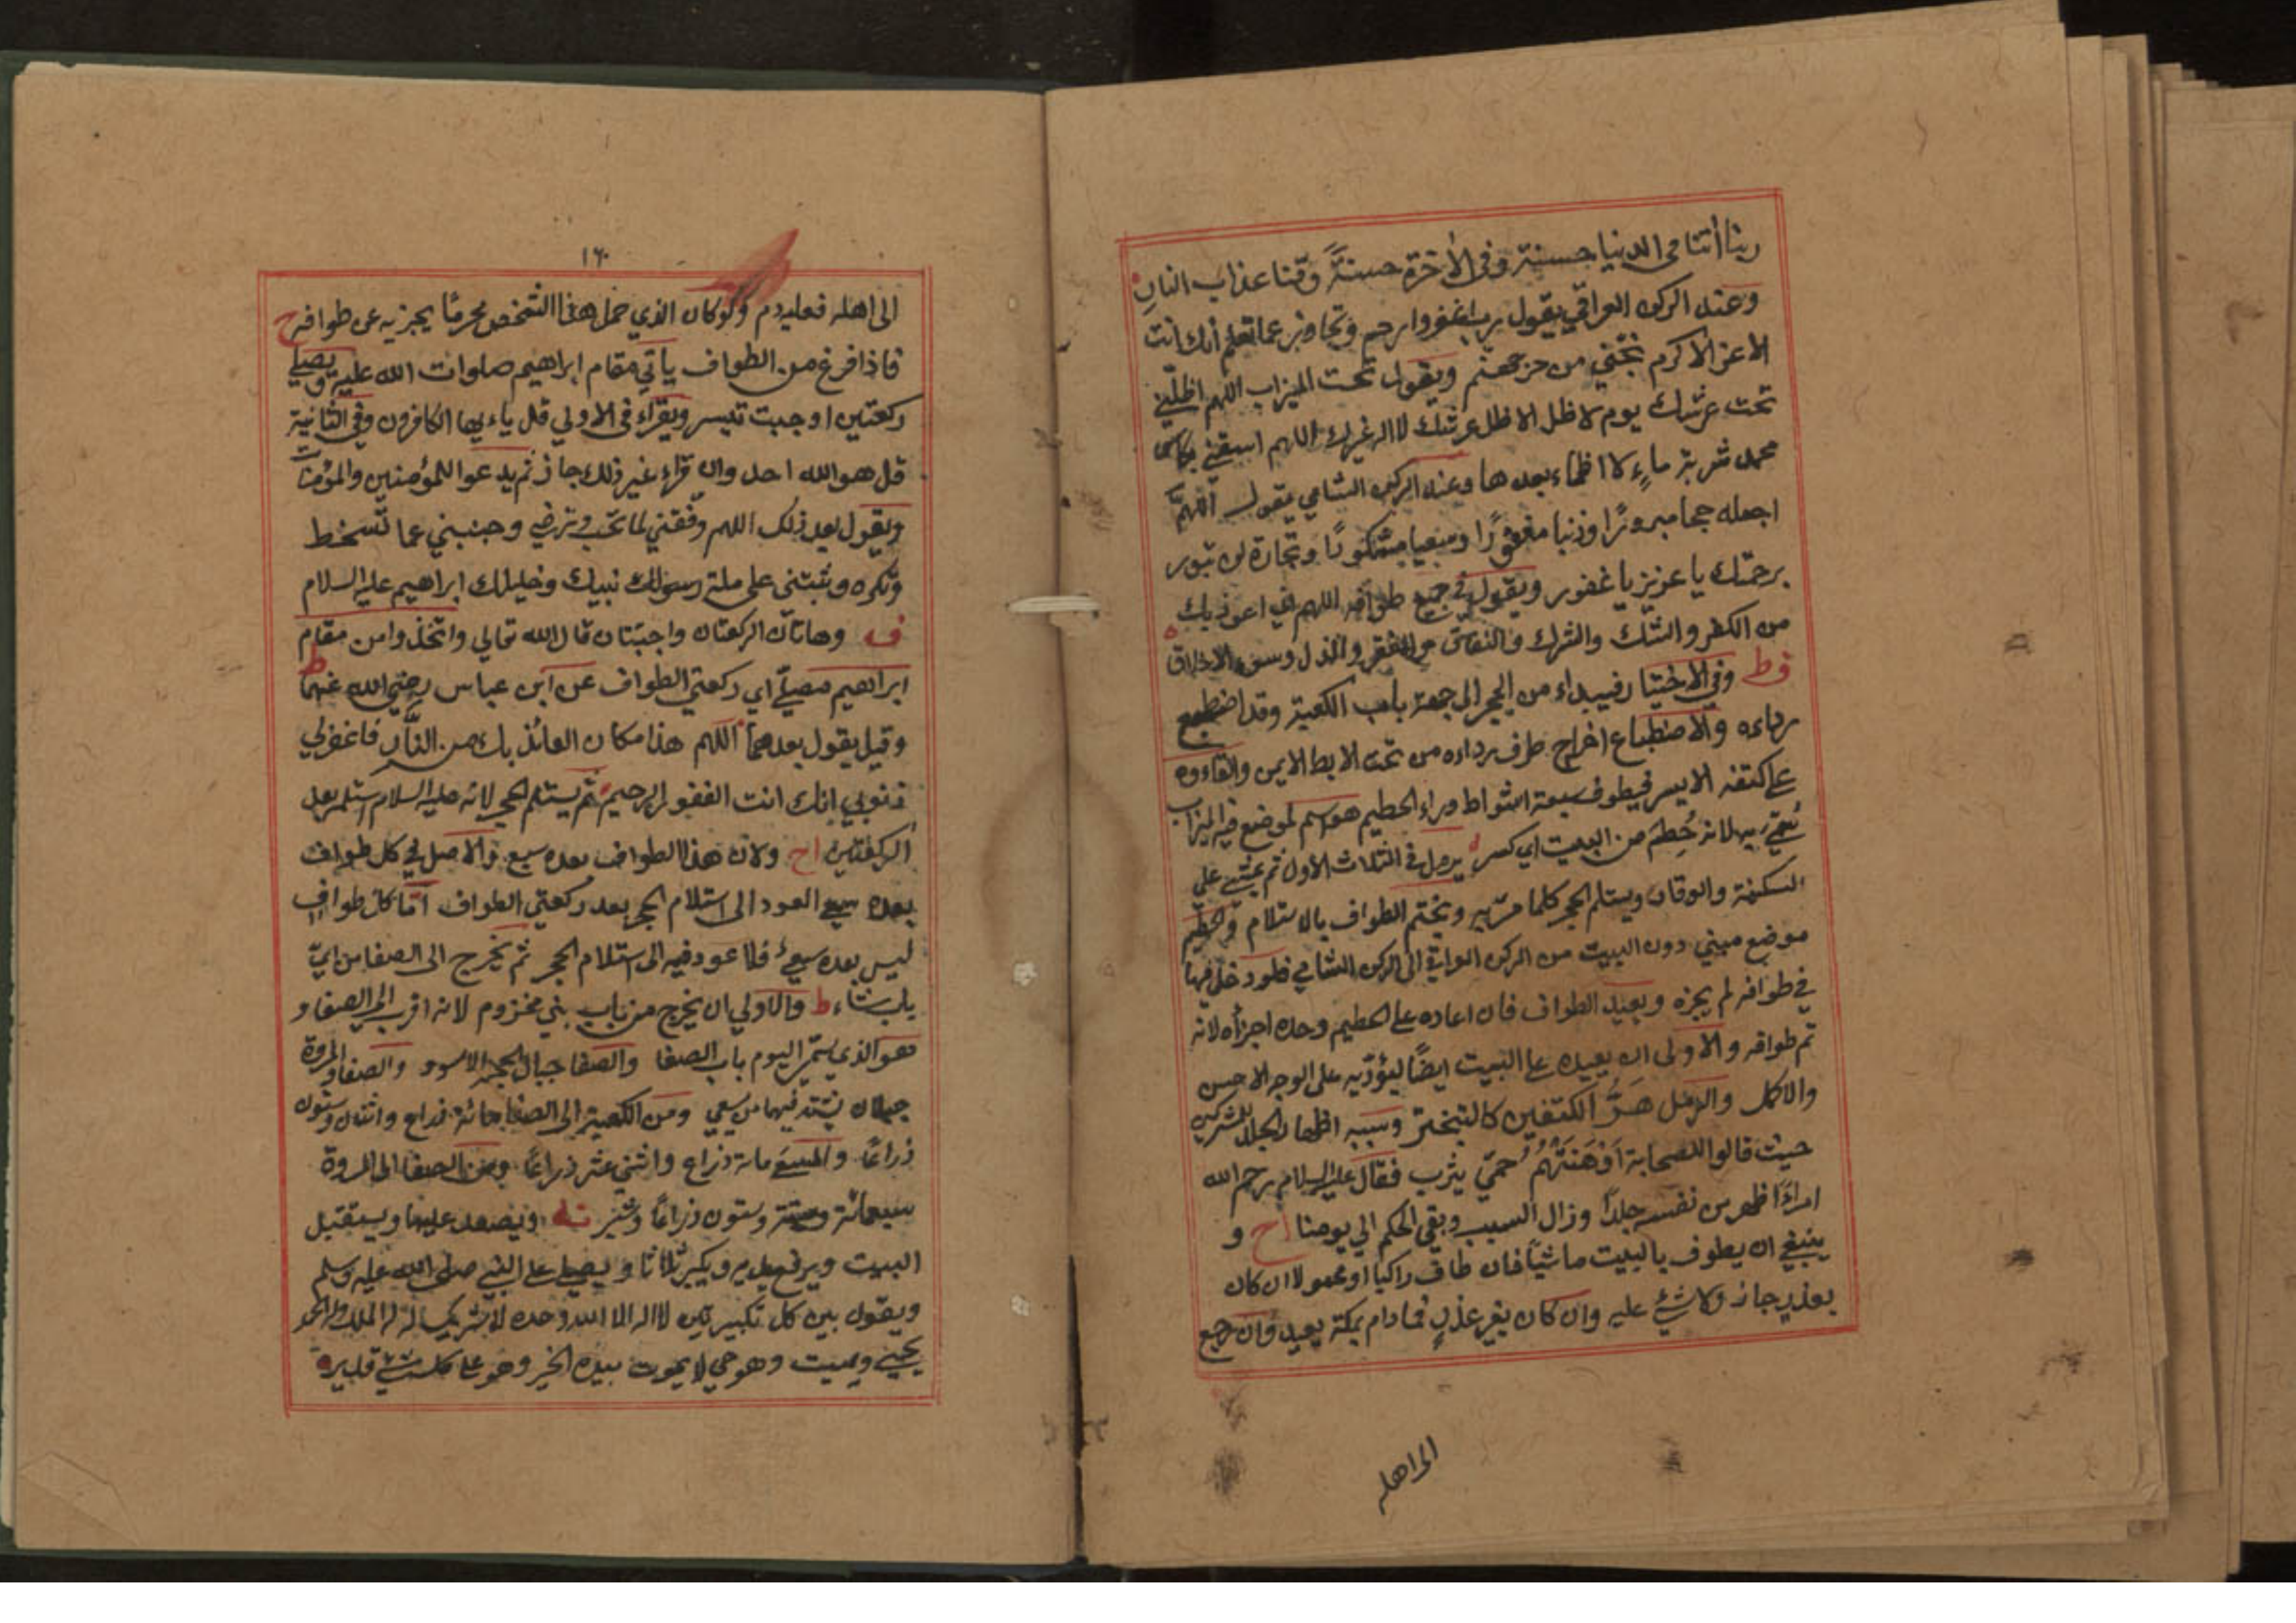 ربنا أتنا فى الدنيا حسنة وفى الأخرة حسنةً وقنا عذاب النارِ
وعند الركن العراقي يقول رب اغفر وارحم وتجاوز عما تعلم انك انت
الاعز الاكرم نجّني من حر جهنم ويقول تحت الميزاب اللهم اظلّني
تحت عرشك يوم لا ظل الا ظل عرشك لا اله غيرك اللهم اسقني بكاس
محمد شربة ماءٍ لا اظماء بعدها وعند الركن الشامي يقول اللهمّ
اجعله حجا مبرورًا وذنبا مغفورًا وسعيا مشكورًا وتجارة لن تبور
برحمتك يا عزيز يا غفور ويقول في جميع طوافه اللهم اني اعوذ بك
من الكفر والشك والشرك والنفاق والفقر والذل وسوء الاخلاق
فط وفي الاختيار فيبداء من الحجر الى جهة باب الكعبة وقد اضطبع
رداءه والاضطباع اخراج طرف رداءه من تحت الابط الايمن والقاءوه
على كتفه الايسر فيطوف سبعة اشواط وراء الحطيم هو اسم لموضع فيه الميزاب
سُمّي به لانه حُطِمَ من البيت اي كسر يرمل في الثلاث الأول ثم يمشي على
السكينة والوقار ويستلم الحجر كلما مرّ به ويختم الطواف بالاستلام والحطيم
موضع مبني دون البيت من الركن العراقي الى الركن الشامي فلو دخل فيها
في طوافه لم يجزه ويعيد الطواف فان اعاده على الحطيم وحده اجزأه لانه
تم طوافه والاولى ان يعيده على البيت ايضًا ليؤدّيه على الوجه الاحسن
والاكمل والرمل هَزُّ الكتفين كالتبختر وسببه اظهار الجلد للمشركين
حيث قالوا للصحابة اَوْهَنَتْهُمْ حمىّ يثرب فقال عليه السلام رحم الله
امراءً اظهر من نفسه جلدًا وزال السبب وبقي الحكم الي يومنا اح و
ينبغي ان يطوف بالبيت ماشيًا فان طاف راكبا او محمولا ان كان
بعذر جاز ولا شئ عليه وان كان بغير عذرٍ فما دام بمكة يعيد وان رجع
الى اهله
١٦
الى اهله فعليه دم ولو كان الذي حمل هذا الشخص محرمًا يجزيه عن طوافه ح
فاذا فرغ من الطواف يأتي مقام ابراهيم صلوات الله عليه ويصلي
ركعتين او حيث تيسر ويقراء فى الاولي قل ياءيها الكافرون وفي الثانية
قل هو الله احد وان قراء غير ذلك جاز ثم يدعوا للمؤمنين والمؤمنات
ويقول بعد ذلك اللهم وفقني لما تحب وترضي وجنبني عما تسخط
وتكره وثبتنى على ملة رسولك نبيك وخليلك ابراهيم عليه السلام
ف وهاتان الركعتان واجبتان قال الله تعالي واتخذوا من مقام
ابراهيم مصلّي اي ركعتي الطواف عن ابن عباس رضي الله عنهما ط
وقيل يقول بعدهما اللهم هذا مكان العائذ بك من النّار فاغفر لي
ذنوبي انك انت الغفور الرحيم ثم يستلم الحجر لانه عليه السلام استلم بعد
الركعتين اح ولان هذا الطواف بعده سعي والاصل في كل طواف
بعده سعي العود الى استلام الحجر بعد ركعتي الطواف امّا كل طواف
ليس بعده سعيٌ فلا عود فيه الى استلام الحجر ثم يخرج الى الصفا من ايّ
باب شاء ط والاولي ان يخرج من باب بني مخزوم لانه اقرب الي الصفا و
هو الذي يسمّى اليوم باب الصفا والصفا حيال الحجر الاسود والصفا والمروة
جبلان يشتد فيهما من سعي ومن الكعبة إلى الصفا مائة ذراع واثنان وستون
ذراعًا والمسعَى مائة ذراع واثني عشر ذراعًا ومن الصفا الى المروة
سبعمائة وستة وستون ذراعًا وشبر ويصعد عليها ويستقبل
البيت ويرفع يديه ويكبر ثلاثا ويصلي على النبي صلى الله عليه وسلم
ويقول بين كل تكبيرتين لا اله الا الله وحده لا شريك له له الملك وله الحمد
يحيي ويميت وهو حي لا يموت بيده الخير وهو على كل شئ قدير